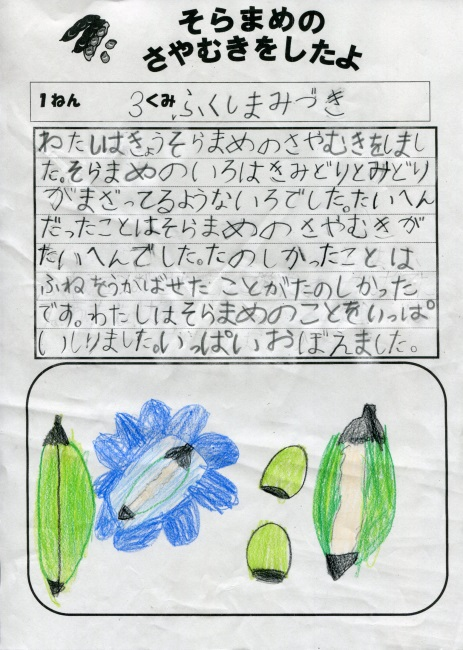 そらまめの
さやむきをしたよ
1ねん 3くみ ふくしまみづき
わたしはきょうそらまめのさやむきをしまし
た。そらまめのいろはきみどりとみどり
がまざってるようないろでした。たいへん
だったことはそらまめのさやむきが
たいへんでした。たのしかったことは
ふねをうかばせたことがたのしかった
です。わたしはそらまめのことをいっぱい
いしりました。いっぱいおぼえました。